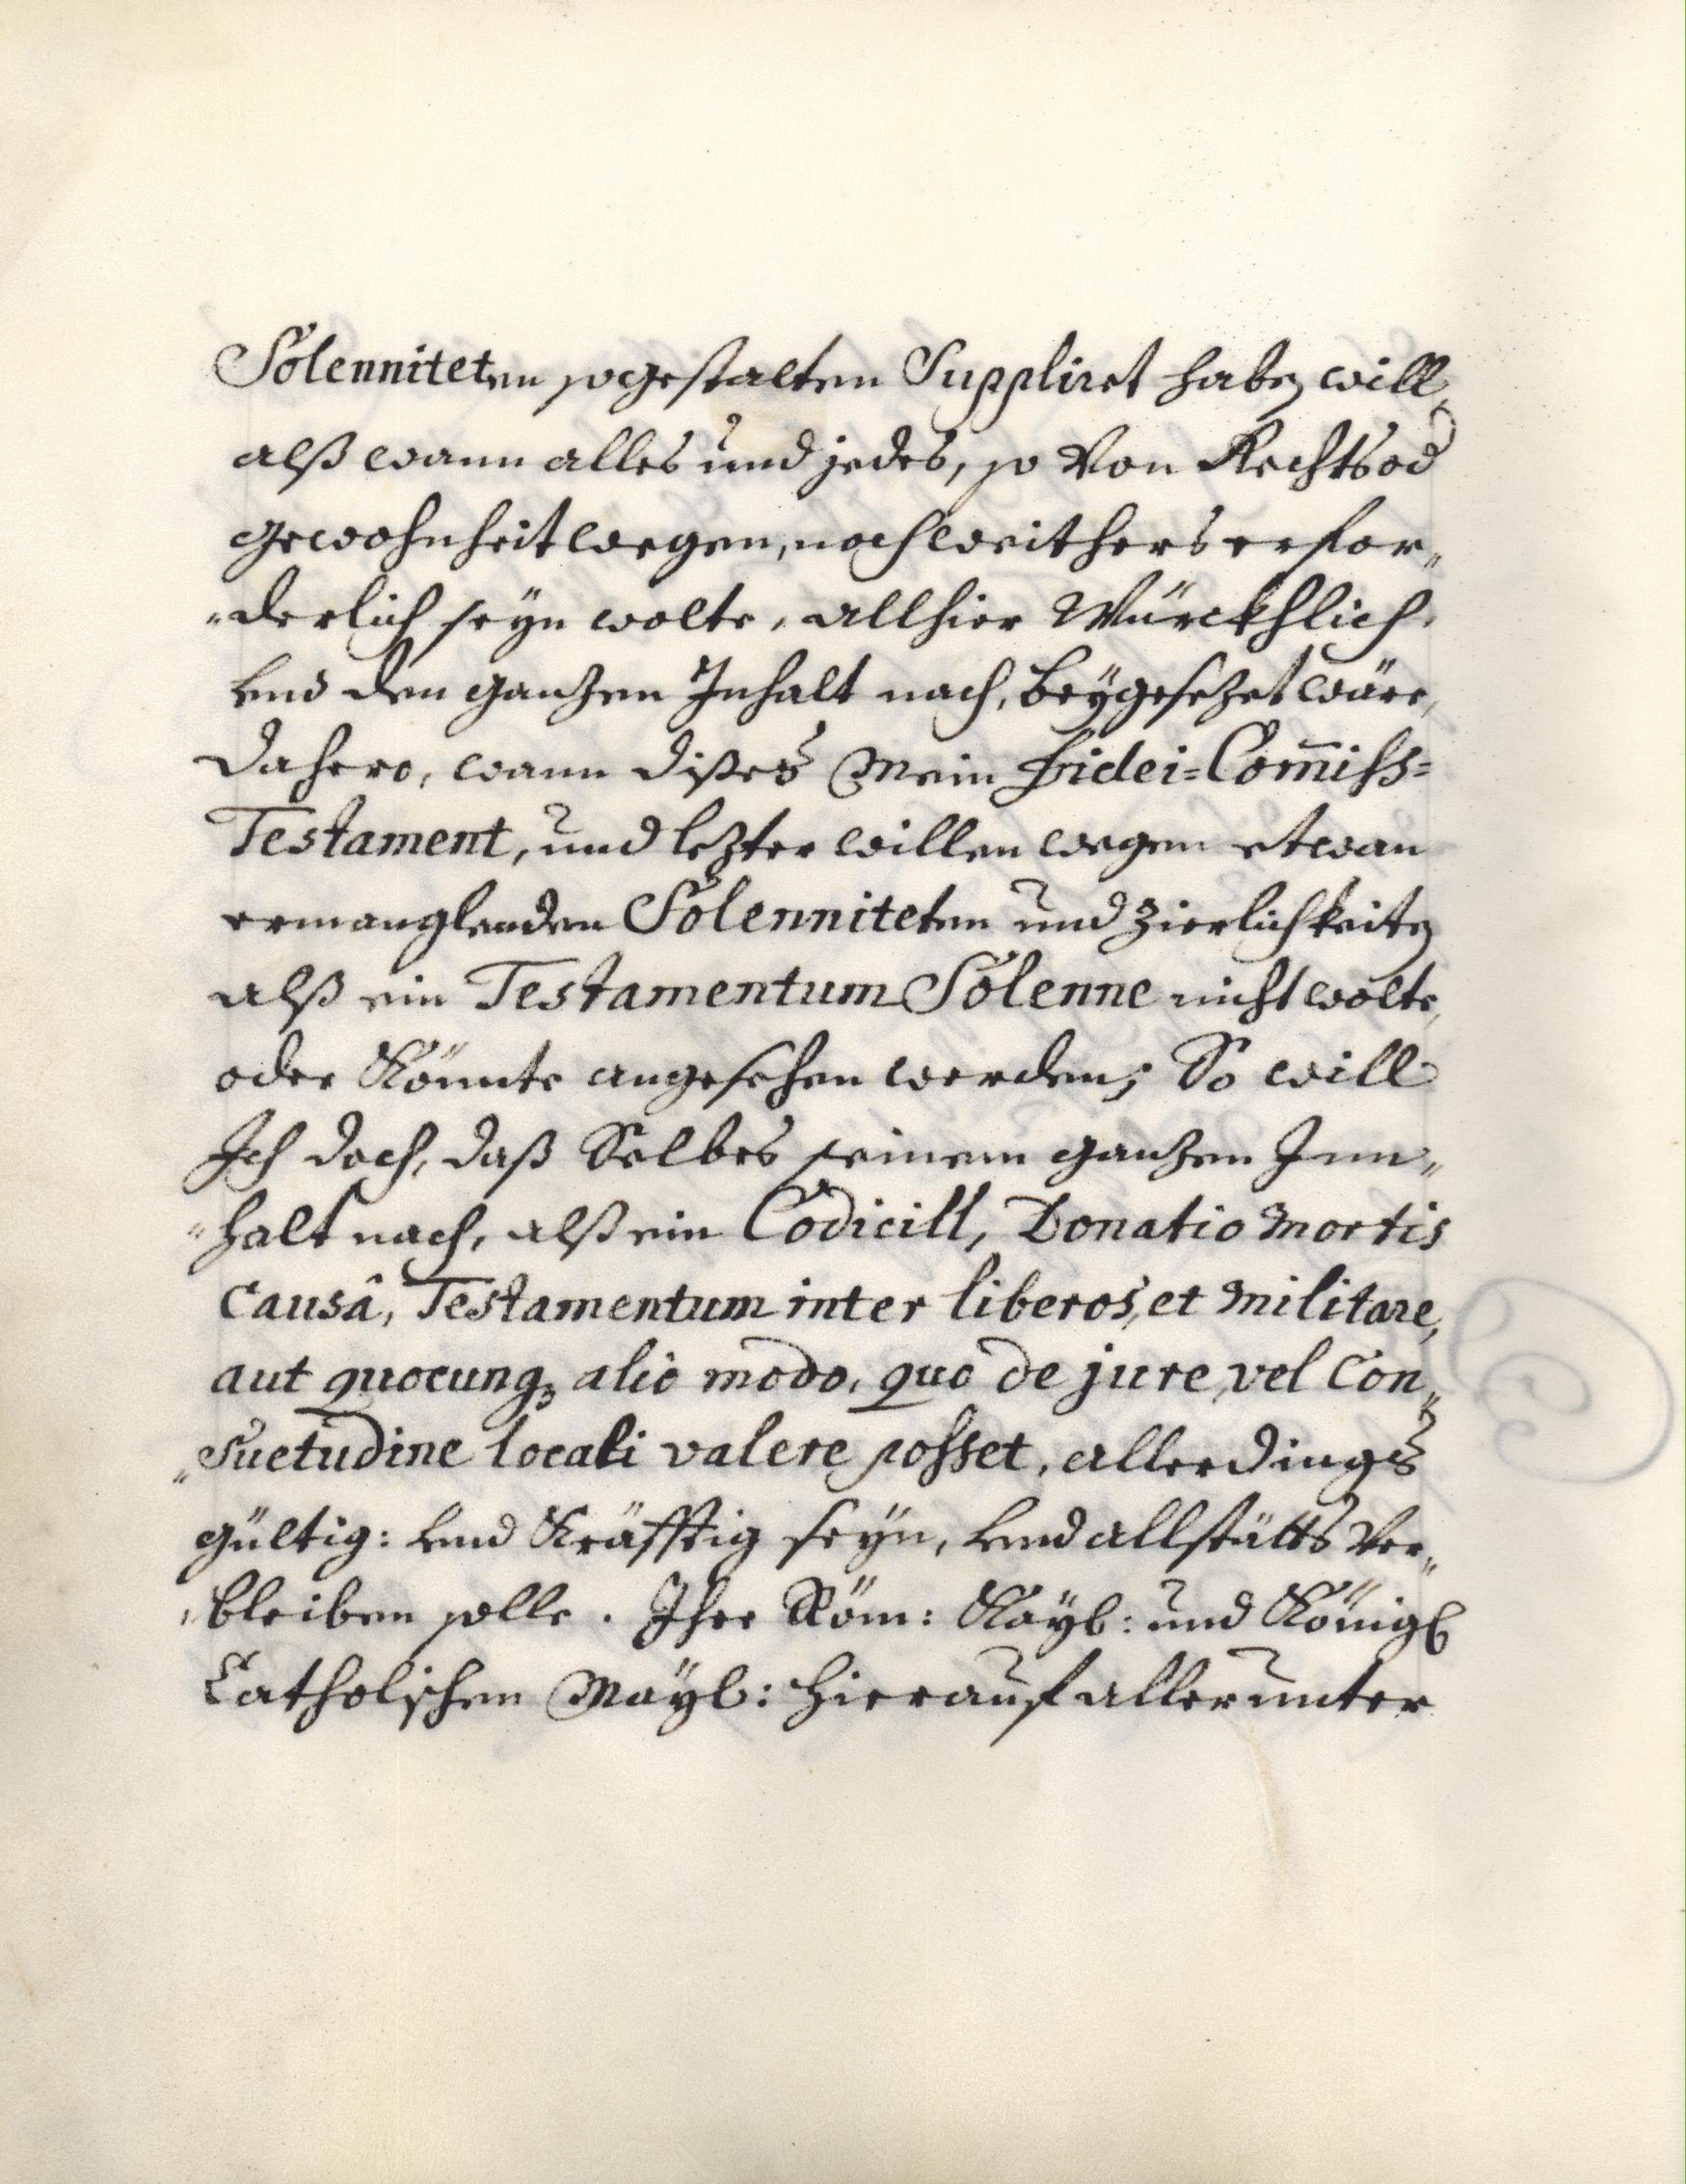 Solenniteten sogestalten Suppliret haben will,
alß wann alles und jedes, so Von Rechts od
gewohnheit wegen, noch weithers erfor„
„derlich seyn wolte, allhier Würckhlich,
vnd den ganzen Inhalt nach, beÿgesezet wäre,
Dahero, wann dißes Mein Fidei=Com̄iss=
Testament, und lezter willen wegen etwan
ermanglenden Solenniteten und Zierlichkeiten
alß ein Testamentum Solenne nicht wolte,
oder Könnte angesehen werden; So will
Ich doch, daß Selbes seinem ganzen Inn„
„halt nach, alß ein Codicill, Donatio Mortis
Causâ, Testamentum inter liberos, et Militare,
aut quocunq₃ alio modo, quo de jure, vel Con„
„suetudine locali valere posset, allerdings
gültig: vnd Kräfftig seÿn, vnd allstätts Ver„
„bleiben solle. Ihro Röm: Kaÿl: und Königl
Catholischen Maÿl: hierauf allerunter